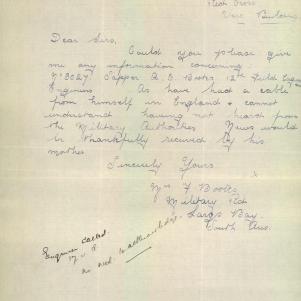 Red Cross
Bureau
Dear Sirs,
Could you please give
me any information concerning
No 3027. Sapper A. S. Boots, 12th Field Coy
Engineers. As have had a cable
from himself in England & cannot
understand having not heard from
the Military Authorities News would
be thankfully recieved by his
mother.
Sincerely Yours
Mrs F Boots
Military Rd
Largs Bay.
South Aus.
Enquirer called